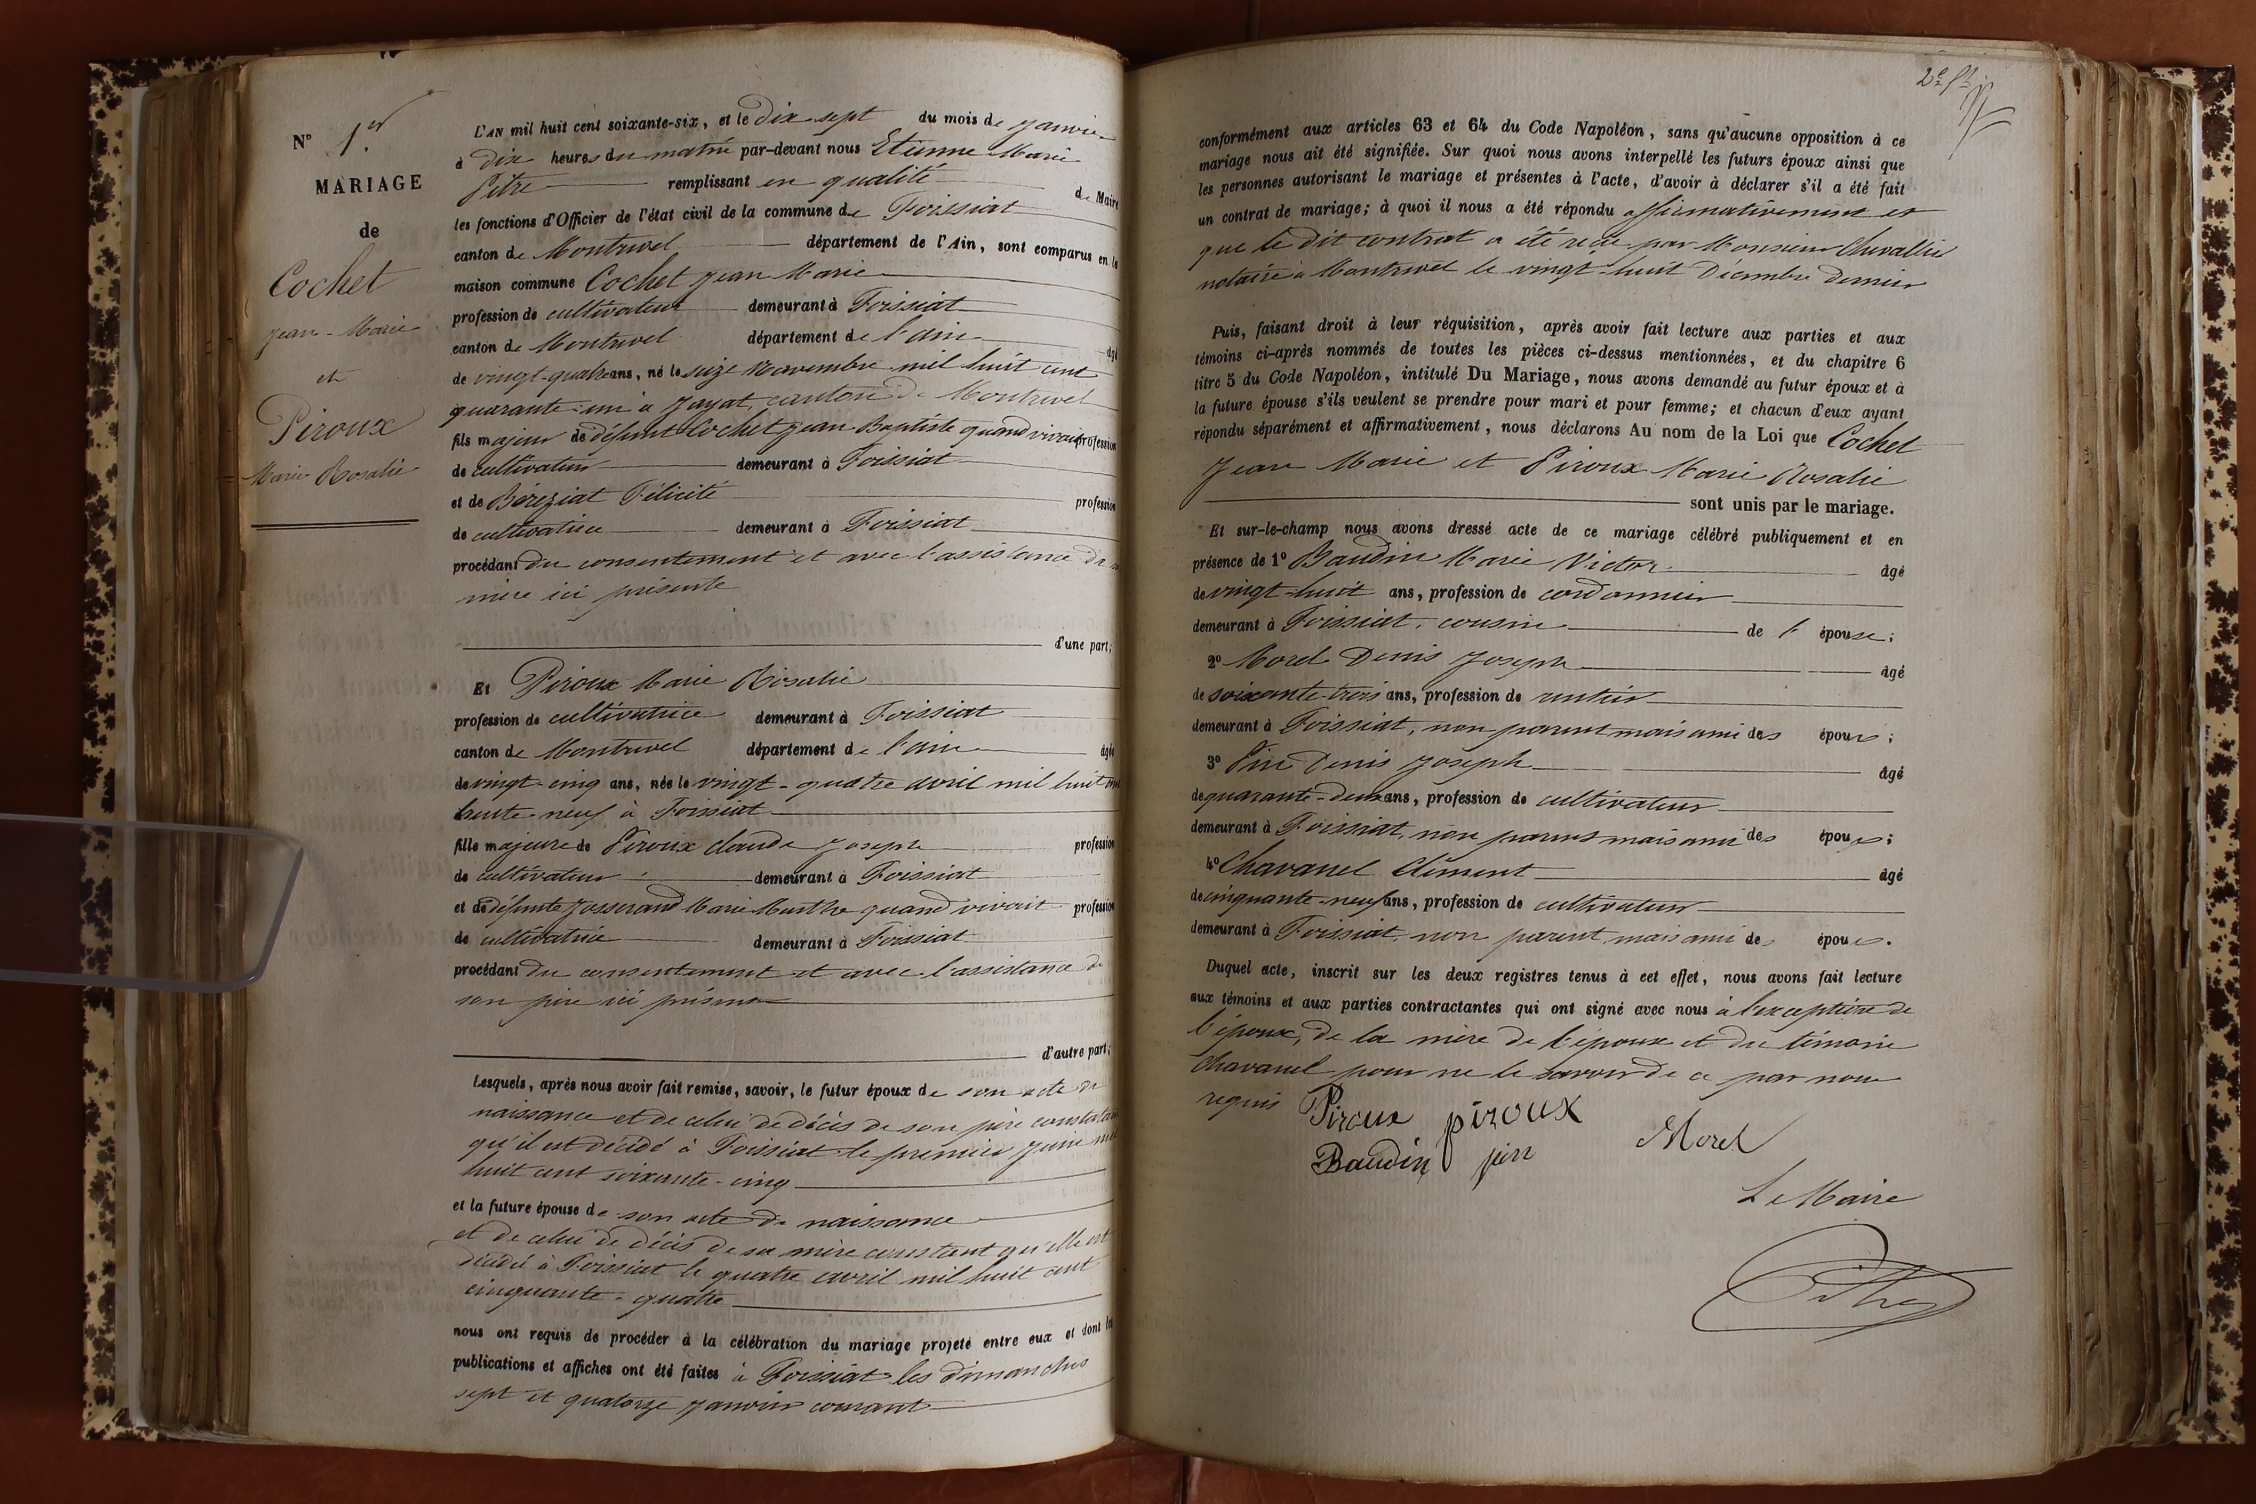 N° 1er
MARIAGE
de
Cochet
Jean-Marie
et
Piroux
Marie Rosalie
L'AN mil huit cent soixante-six, et le dix-sept du mois de Janvier
à dix heures du matin par-devant nous Etienne Marie
Pitre remplissant en qualité de Maire
les fonctions d'Officier de l'état civil de la commune de Foissiat
canton de Montrevel département de l'Ain, sont comparus en la
maison commune Cochet Jean Marie
profession de cultivateur demeurant à Foissiat
canton de Montrevel département de l'ain âgé
de vingt-quatre ans, né le seize Novembre mil huit cent
quarante-un à Jayat, canton de Montrevel
fils majeur de défunt Cochet Jean Baptiste quand vivait profession
de cultivateur demeurant à Foissiat
et de Béréziat Félicité profession
de cultivatrice demeurant à Foissiat
procédant du consentement et avec l'assistance de sa
mère ici présente
d'une part;
Et Piroux Marie Rosalie
profession de cultivatrice demeurant à Foissiat
canton de Montrevel département de l'ain âgée
de vingt-cinq ans, née le vingt-quatre avril mil huit cent
trente neuf à Foissiat
fille majeure de Piroux Claude Joseph profession
de cultivateur demeurant à Foissiat
et de défunte Josserand Marie Marthe quand vivait profession
de cultivatrice demeurant à Foissiat
procédant du consentement et avec l'assistance de
son père ici présent
d'autre part;
Lesquels, après nous avoir fait remise, savoir, le futur époux de son acte de
naissance et de celui de décès de son père constatant
qu'il est décédé à Foissiat le premier Juin mil
huit cent soixante-cinq
et la future épouse de son acte de naissance
et de celui de décès de sa mère constatant qu'elle est
décédée à Foissiat le quatre avril mil huit cent
cinquante-quatre
nous ont requis de procéder à la célébration du mariage projeté entre eux et dont les
publications et affiches ont été faites à Foissiat les dimanches
sept et quatorze Janvier courant
conformément aux articles 63 et 64 du Code Napoléon, sans qu'aucune opposition à ce
mariage nous ait été signifiée. Sur quoi nous avons interpellé les futurs époux ainsi que
les personnes autorisant le mariage et présentes à l'acte, d'avoir à déclarer s'il a été fait
un contrat de mariage; à quoi il nous a été répondu affirmativement et
que le dit contrat a été reçu par Monsieur Chevallier
notaire à Montrevel le vingt-huit Décembre dernier
Puis, faisant droit à leur réquisition, après avoir fait lecture aux parties et aux
témoins ci-après nommés de toutes les pièces ci-dessus mentionnées, et du chapitre 6
titre 5 du Code Napoléon, intitulé Du Mariage, nous avons demandé au futur époux et à
la future épouse s'ils veulent se prendre pour mari et pour femme; et chacun d'eux ayant
répondu séparément et affirmativement, nous déclarons Au nom de la Loi que Cochet
Jean Marie et Piroux Marie Rosalie
sont unis par le mariage.
Et sur-le-champ nous avons dressé acte de ce mariage célébré publiquement et en
présence de 1° Baudin Marie Victor âgé
de vingt-huit ans, profession de cordonnier
demeurant à Foissiat, cousin de l'épouse;
2° Morel Denis Joseph âgé
de soixante-trois ans, profession de rentier
demeurant à Foissiat, non parent mais ami des époux;
3° Pin Denis Joseph âgé
de quarante-deux ans, profession de cultivateur
demeurant à Foissiat, non parent mais ami des époux;
4° Chavanel Clément âgé
de cinquante-neuf ans, profession de cultivateur
demeurant à Foissiat, non parent mais ami des époux.
Duquel acte, inscrit sur les deux registres tenus à cet effet, nous avons fait lecture
aux témoins et aux parties contractantes qui ont signé avec nous à l'exception de
l'époux, de la mère de l'époux et du témoin
Chavanel pour ne le savoir de ce par nous
requis
Piroux piroux
Baudin pin Morel
Le Maire
Pitre